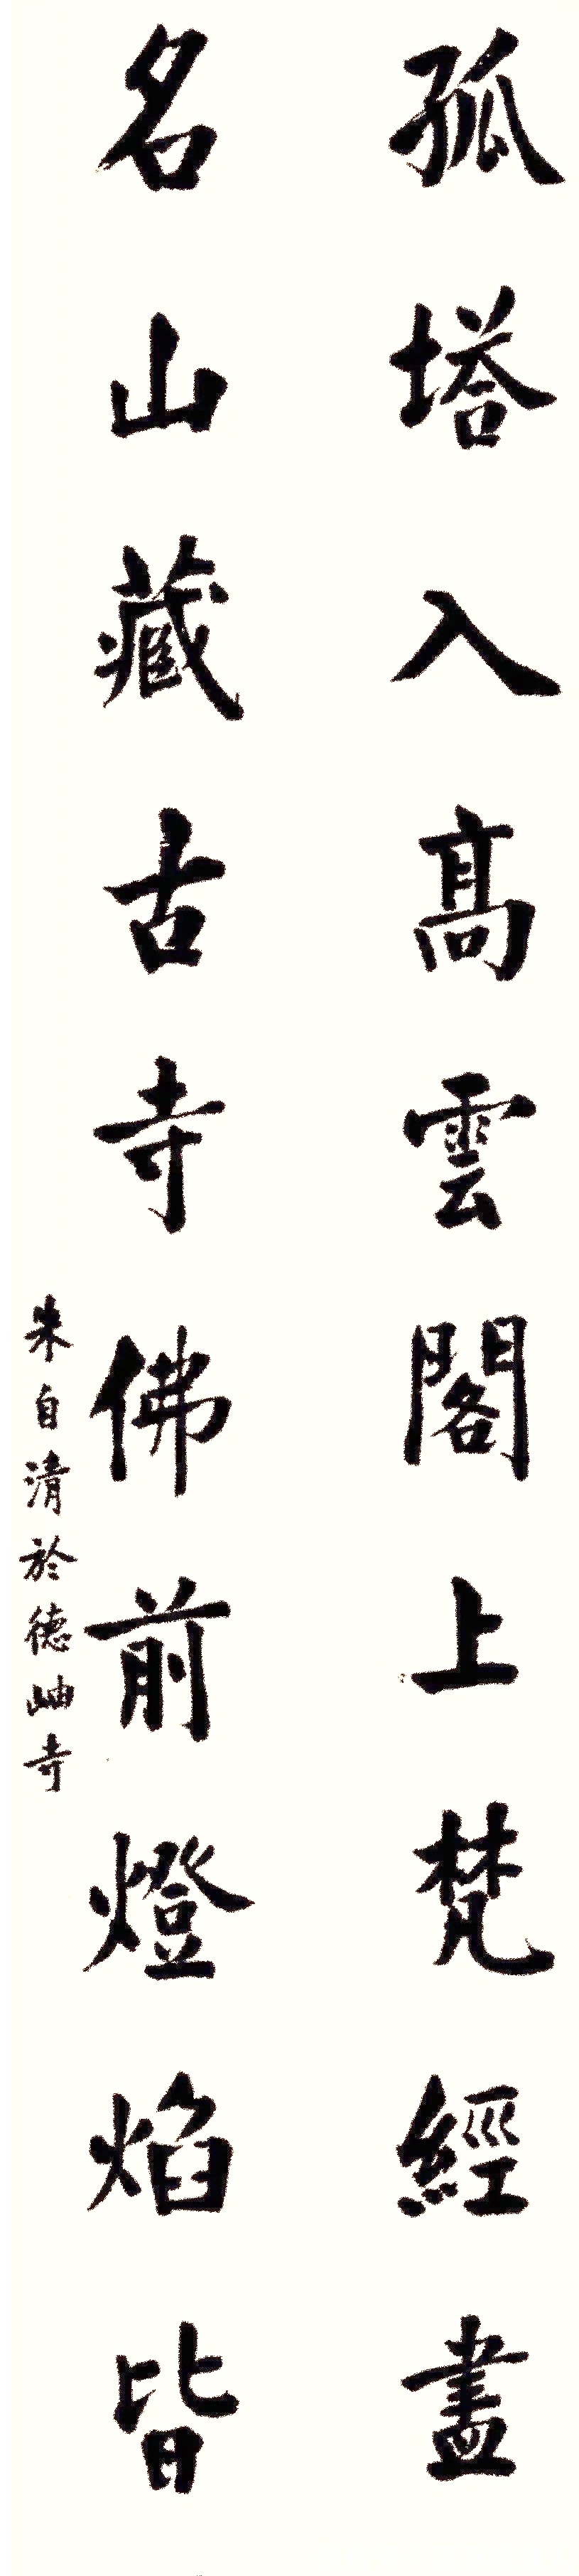 孤塔入高雲閣上梵經盡
名山藏古寺佛前燈焰皆
朱自清於德岫寺